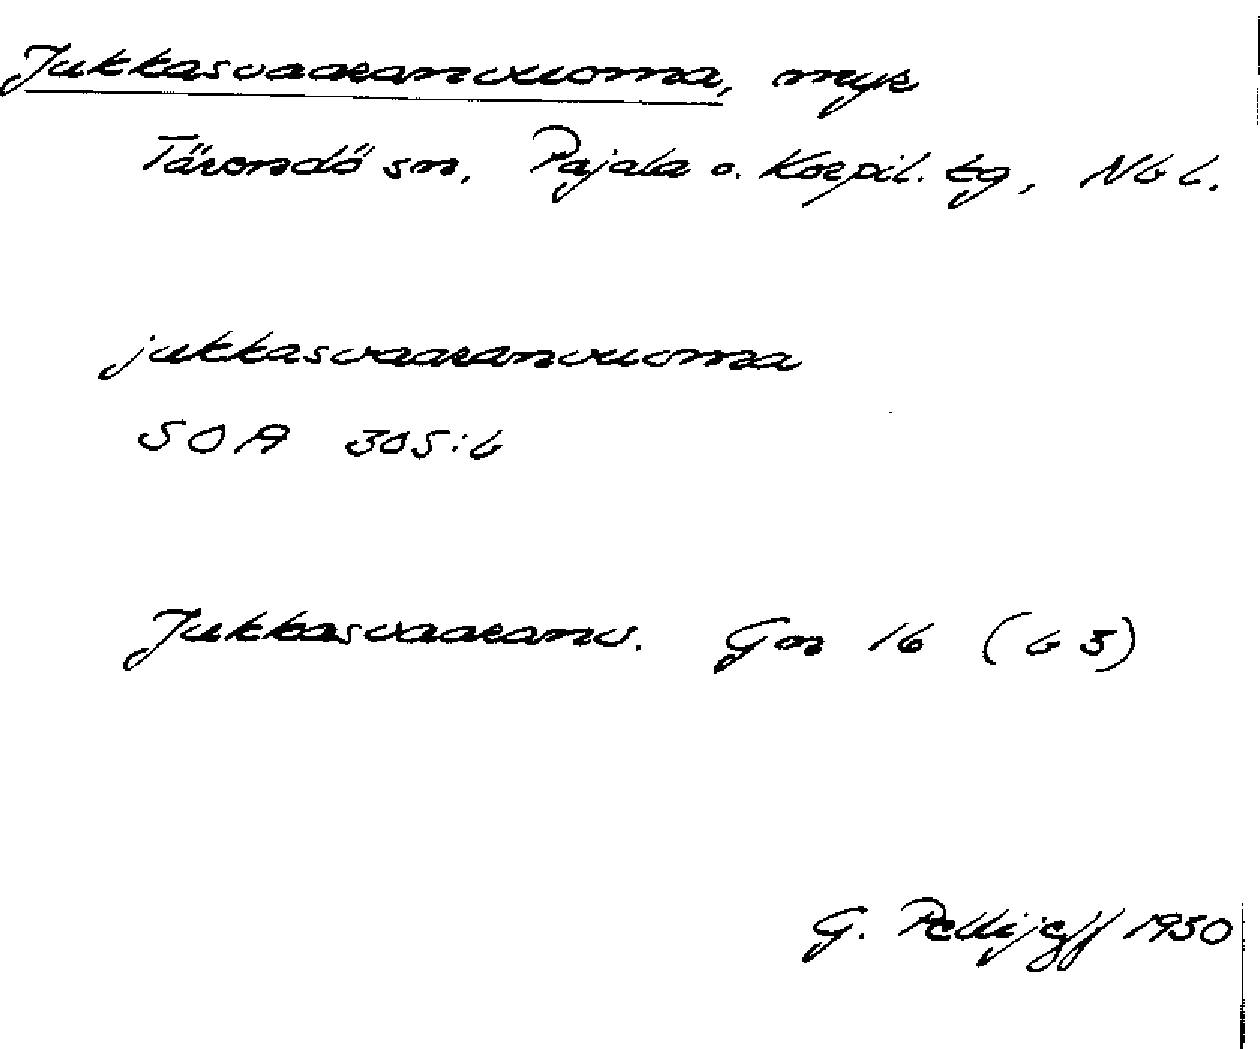 Jukkasvaaranvuoma, myr
Tärendö sn, Pajala o. Korpil. tg, Nb l.
jukkasvaaranvuoma
SOA 305:6
Jukkasvaaranv. Gm 16 (b 3)
G. Pellijeff 1950